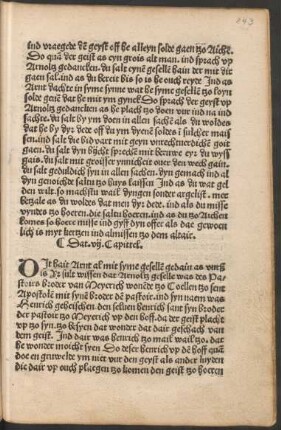 ind vraegede dē geyst off he alleyn solde gaen tzo Aiche.
So quā der geist as eyn grois alt man. ind sprach vp
Arnoltz gedancken. du salt eynē gesellē hain der mit dir
gaen sal. ind as du bereit bis so is he ouch reyde Ind as
Arnt dachte in syme synne wat he syme gesellē tzo loyn
solde geuē dat he mit ym gynck So sprach der geyst vp
Arnoltz gedancken as he plach tzo doen vur ind na ind
sachte. du salt by ym doen in allen sachē als du woldes
dat he by dyr dede off du ym dyenē soldes ī sulcher mais
sen. ind salt die bid vart mit geyn vnrechuerdichē goit
gaen. du salt dyn bicht sprechē mit reuwe eyr du vyss
gais. du salt mit groisser ynnicheit ouer den wech gain.
du salt geduldich syn in allen sachen. dyn gemach ind al
dyn genoichde saltu tzo huys laissen Ind as du wat gel
den wilt. so machstu wail dyngen sonder argelist. mer
betzale as du woldes dat men dyr dede. ind als du misse
vyndes tzo hoeren. die saltu hoeren. ind as du tzo Aichen
komes so hoere misse ind gyff dyn offer als dae gewoen
lich is myt kertzen ind almissen tzo dem altair.
¶ Dat .vij. Capittel.
DIt hait Arnt al mit syme gesellē gedain as vurß
is Ir sult wissen dat Arnoltz geselle was des Pa-
stoirs broder van Meyerich wonēde tzo Coellen tzo sent
Apostolē mit synē broder dē pastoir. ind syn naem was
Henrich geheischen. den seluen henrich sant syn broder
der pastoir tzo Meyerich vp den hoff. da der geist placht
vp tzo syn. tzo besyen dat wonder dat dair geschach van
dem geist. Ind dair was henrich tzo mail wail tzo. dat
he wonder moicht syen So deser henrich vp dē hoff quā
doe en gruwelte ym niet vur den geyst als ander luyden
die dair vp ouch plaegen tzo komen den geist tzo hoeren